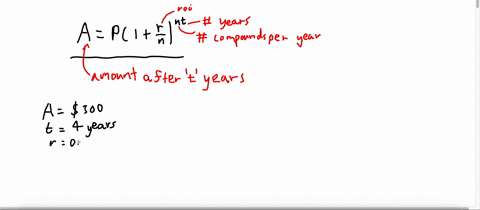 roi
A = P(1 + r/n)^nt # years
# compounds per year
amount after 't' years
A = $300
t = 4 years
r = 0.